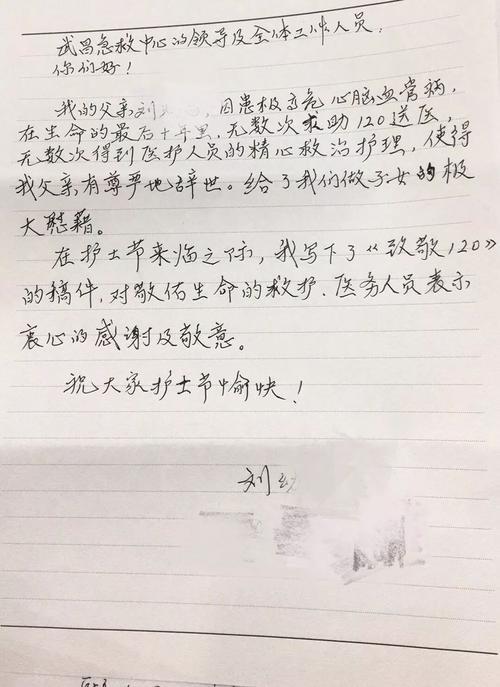 武昌急救中心的领导及全体工作人员:
你们好!
我的父亲刘 因患极其危心脑血管病,
在生命的最后十年里,无数次求助120送医,
无数次得到医护人员的精心救治护理,使得
我父亲有尊严地辞世。给了我们做子女的极
大慰藉。
在护士节来临之际,我写下了《致敬120》
的稿件,对敬佑生命的救护、医务人员表示
衷心的感谢及敬意。
祝大家护士节愉快!
刘